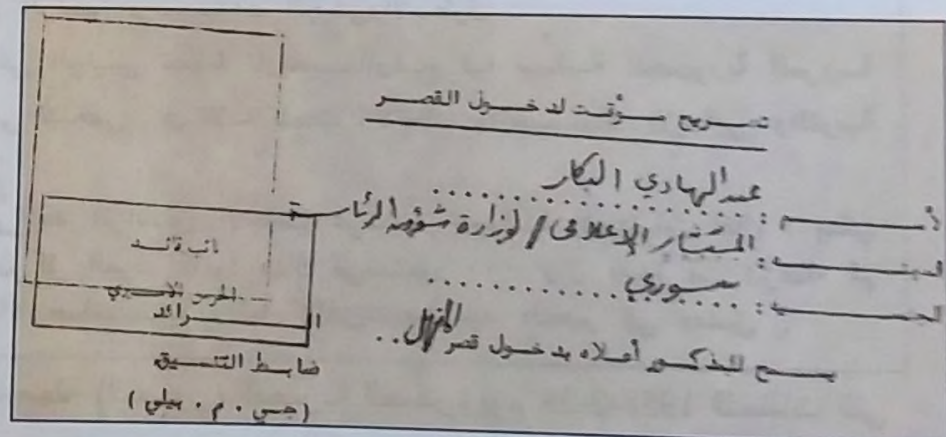 تصريح مؤقت لدخول القصر
الاسم : عبد الهادي البكار
المهنة : المستشار الإعلامي / لوزارة شؤون الرئاسة
الجنسية : سوري
يسمح للمذكور أعلاه بدخول قصر المنهل ..
نائب قائد
الحرس الأميري
الرائد
ضابط التنسيق
(جي . م . بيلي)